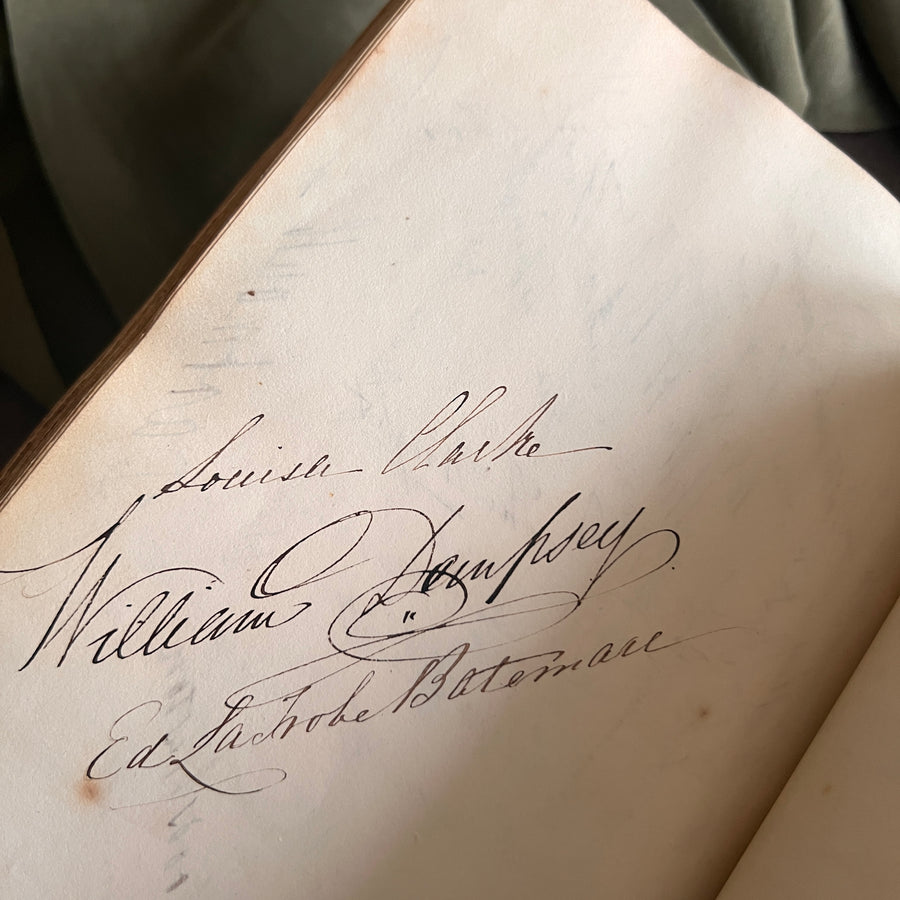 Louisa Clarke
William Dempsey
Ed LaTrobe Bateman